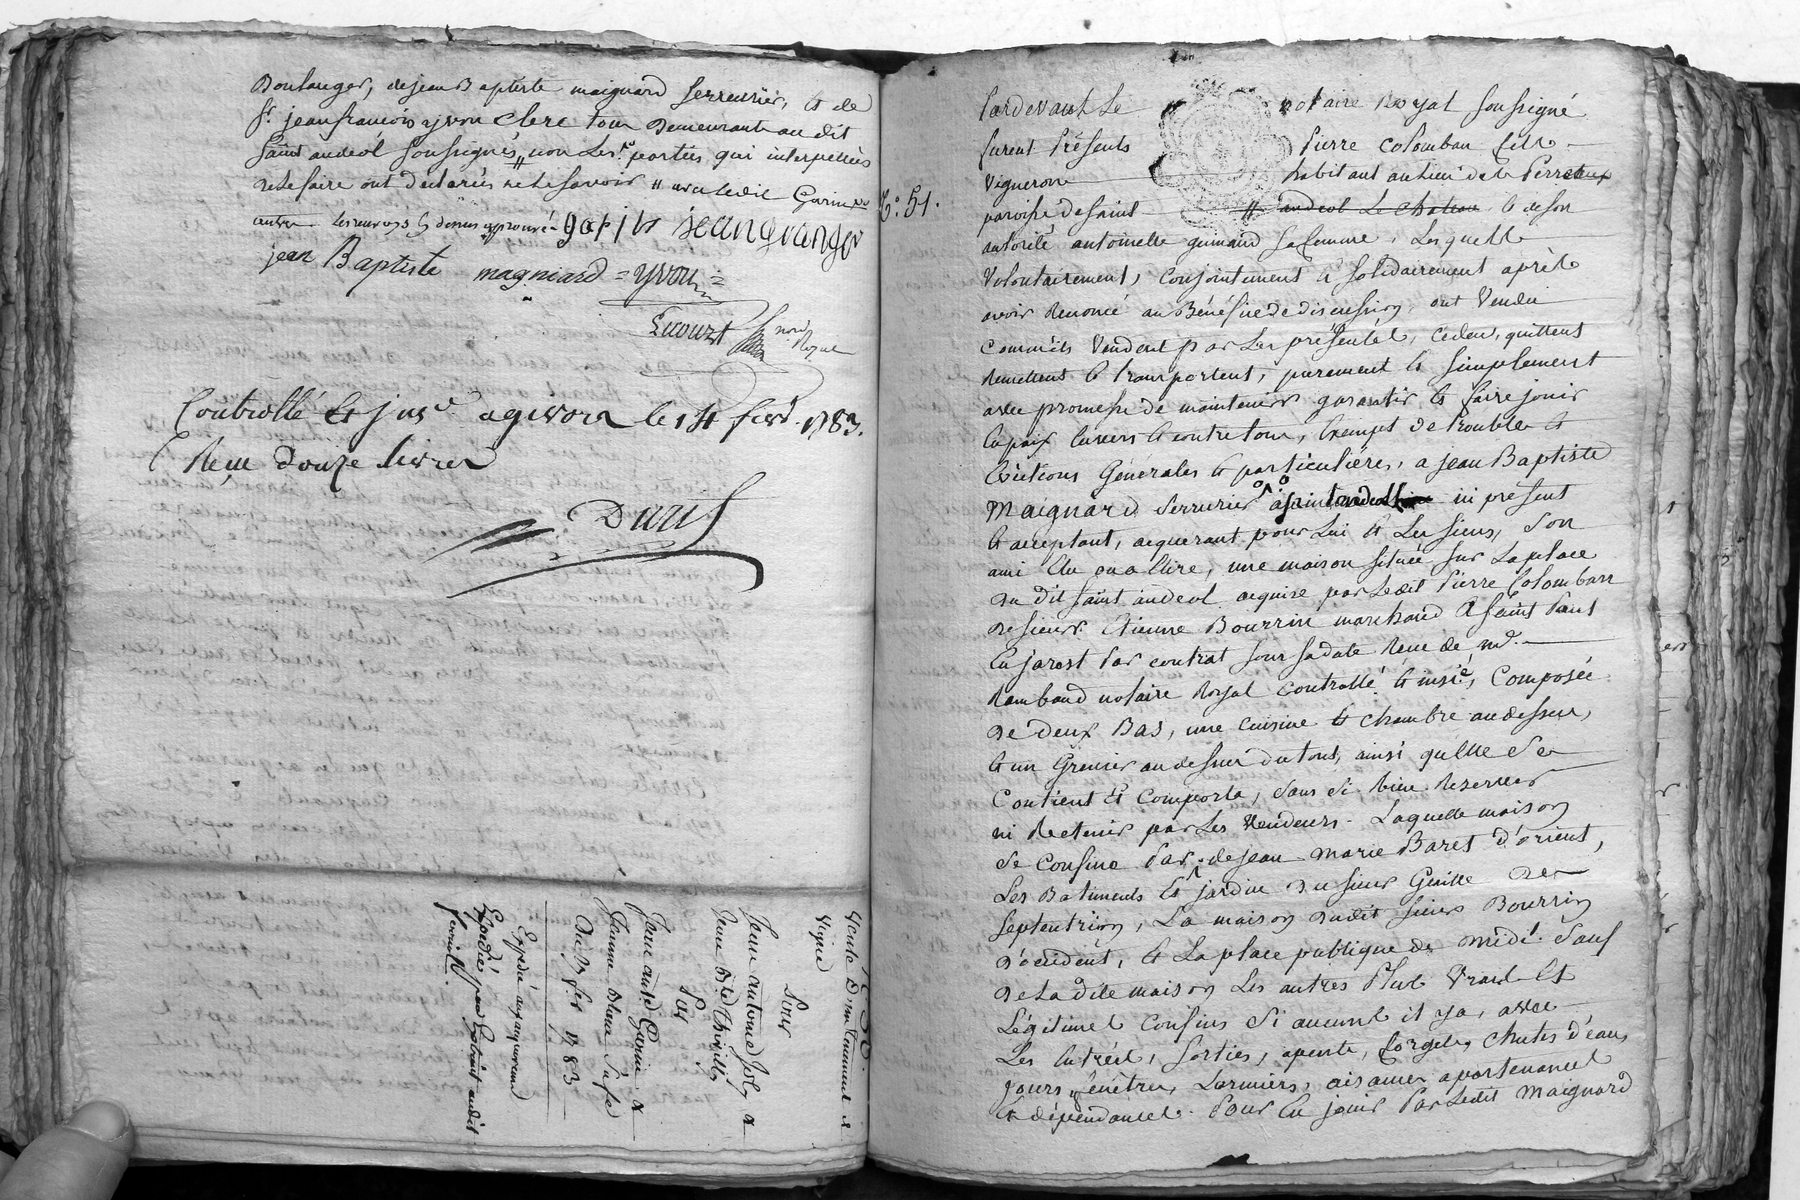 Boulanger, de jean Baptiste maignard serrurier, & de
Sr. jean francois yvon clerc tous demeurants au dit
saint andeol soussignés, non les parties qui interpellées
de le faire ont déclarés ne le savoir
jean Baptiste magniard = yvon =
Controllé & jnsé. a givors le 14 fevr. 1783.
Reçu douze livres
Duris
Vente d'un tenement de
Vigne
Pour
Jean antoine
Par
Jean andré Garin &
Jeanne
Du 7 fer 1783
Expedié
fevrier
No. 51.
Pardevant Le notaire Royal soussigné
furent Présents Pierre Colomban
Vigneron habitant au lieu de
paroisse de saint andeol Le chateau & de son
autorité antoinette guinand sa femme, Lesquels
Volontairement, conjointement & solidairement après
avoir Renoncé au Bénéfice de discussion, ont Vendu
comme ils Vendent par Les présentes, cedent, quittent
Remettent & transportent, purement & simplement
avec promesse de maintenir garantir & faire jouir
En paix Envers & contre tous, Exempt de troubles &
Evictions Générales & particuliéres, a jean Baptiste
Maignard serrurier a saint andeol ici présent
& acceptant, acquerant pour Lui & Les siens, son
ami Elu ou a Elire, une maison située sur La place
du dit saint andeol acquise par Ledit Pierre Colomban
de sieur Etienne Bourrin marchand A saint Paul
En jarest Par contrat sous sa date Reçu de me.
Rambaud notaire Royal controllé & insé, Composée
de deux Bas, une cuisine & chambre au dessus,
& un Grenier au dessus du tout, ainsi qu'Elle se
Contient & Comporte, sans si bien Reserver
ni Retenir par Les Vendeurs. Laquelle maison
se confine Par de jean marie Baret d'orient,
Les Batiments & jardin du sieur de
septentrion, La maison dudit sieur Bourrin
d'occident, & La place publique de midi. Sauf
de La dite maison Les autres Plus Vrais &
Légitimes Confins si aucuns il y a, avec
Les Entrées, sorties, chutes d'eau,
jours, fenêtres, Larmiers, aisances apartenances
& dépendances. Pour En jouir Par Ledit Maignard